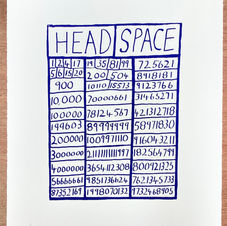 HEAD SPACE
1 2 4 17 19 35 81 99 725621
5 6 15 20 200 504 8918181
900 10110 18573 9123766
10,000 70000661 31465271
100000 78124567 421312718
199603 89999999 58971830
200000 1009971110 916043211
3000000 182564799
4000000 3654112308 800921325
56666661 9851736124 7621345733
87352169 1998070132 9732468905